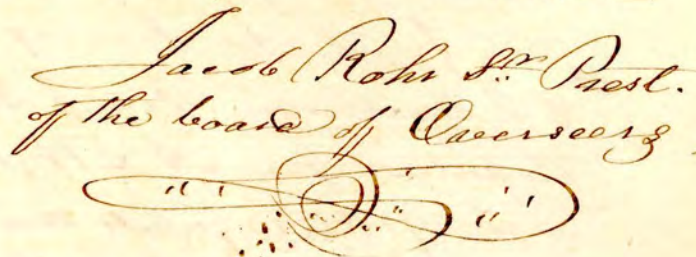 Jacob Rohr Sr. Prest.
of the board of Overseers